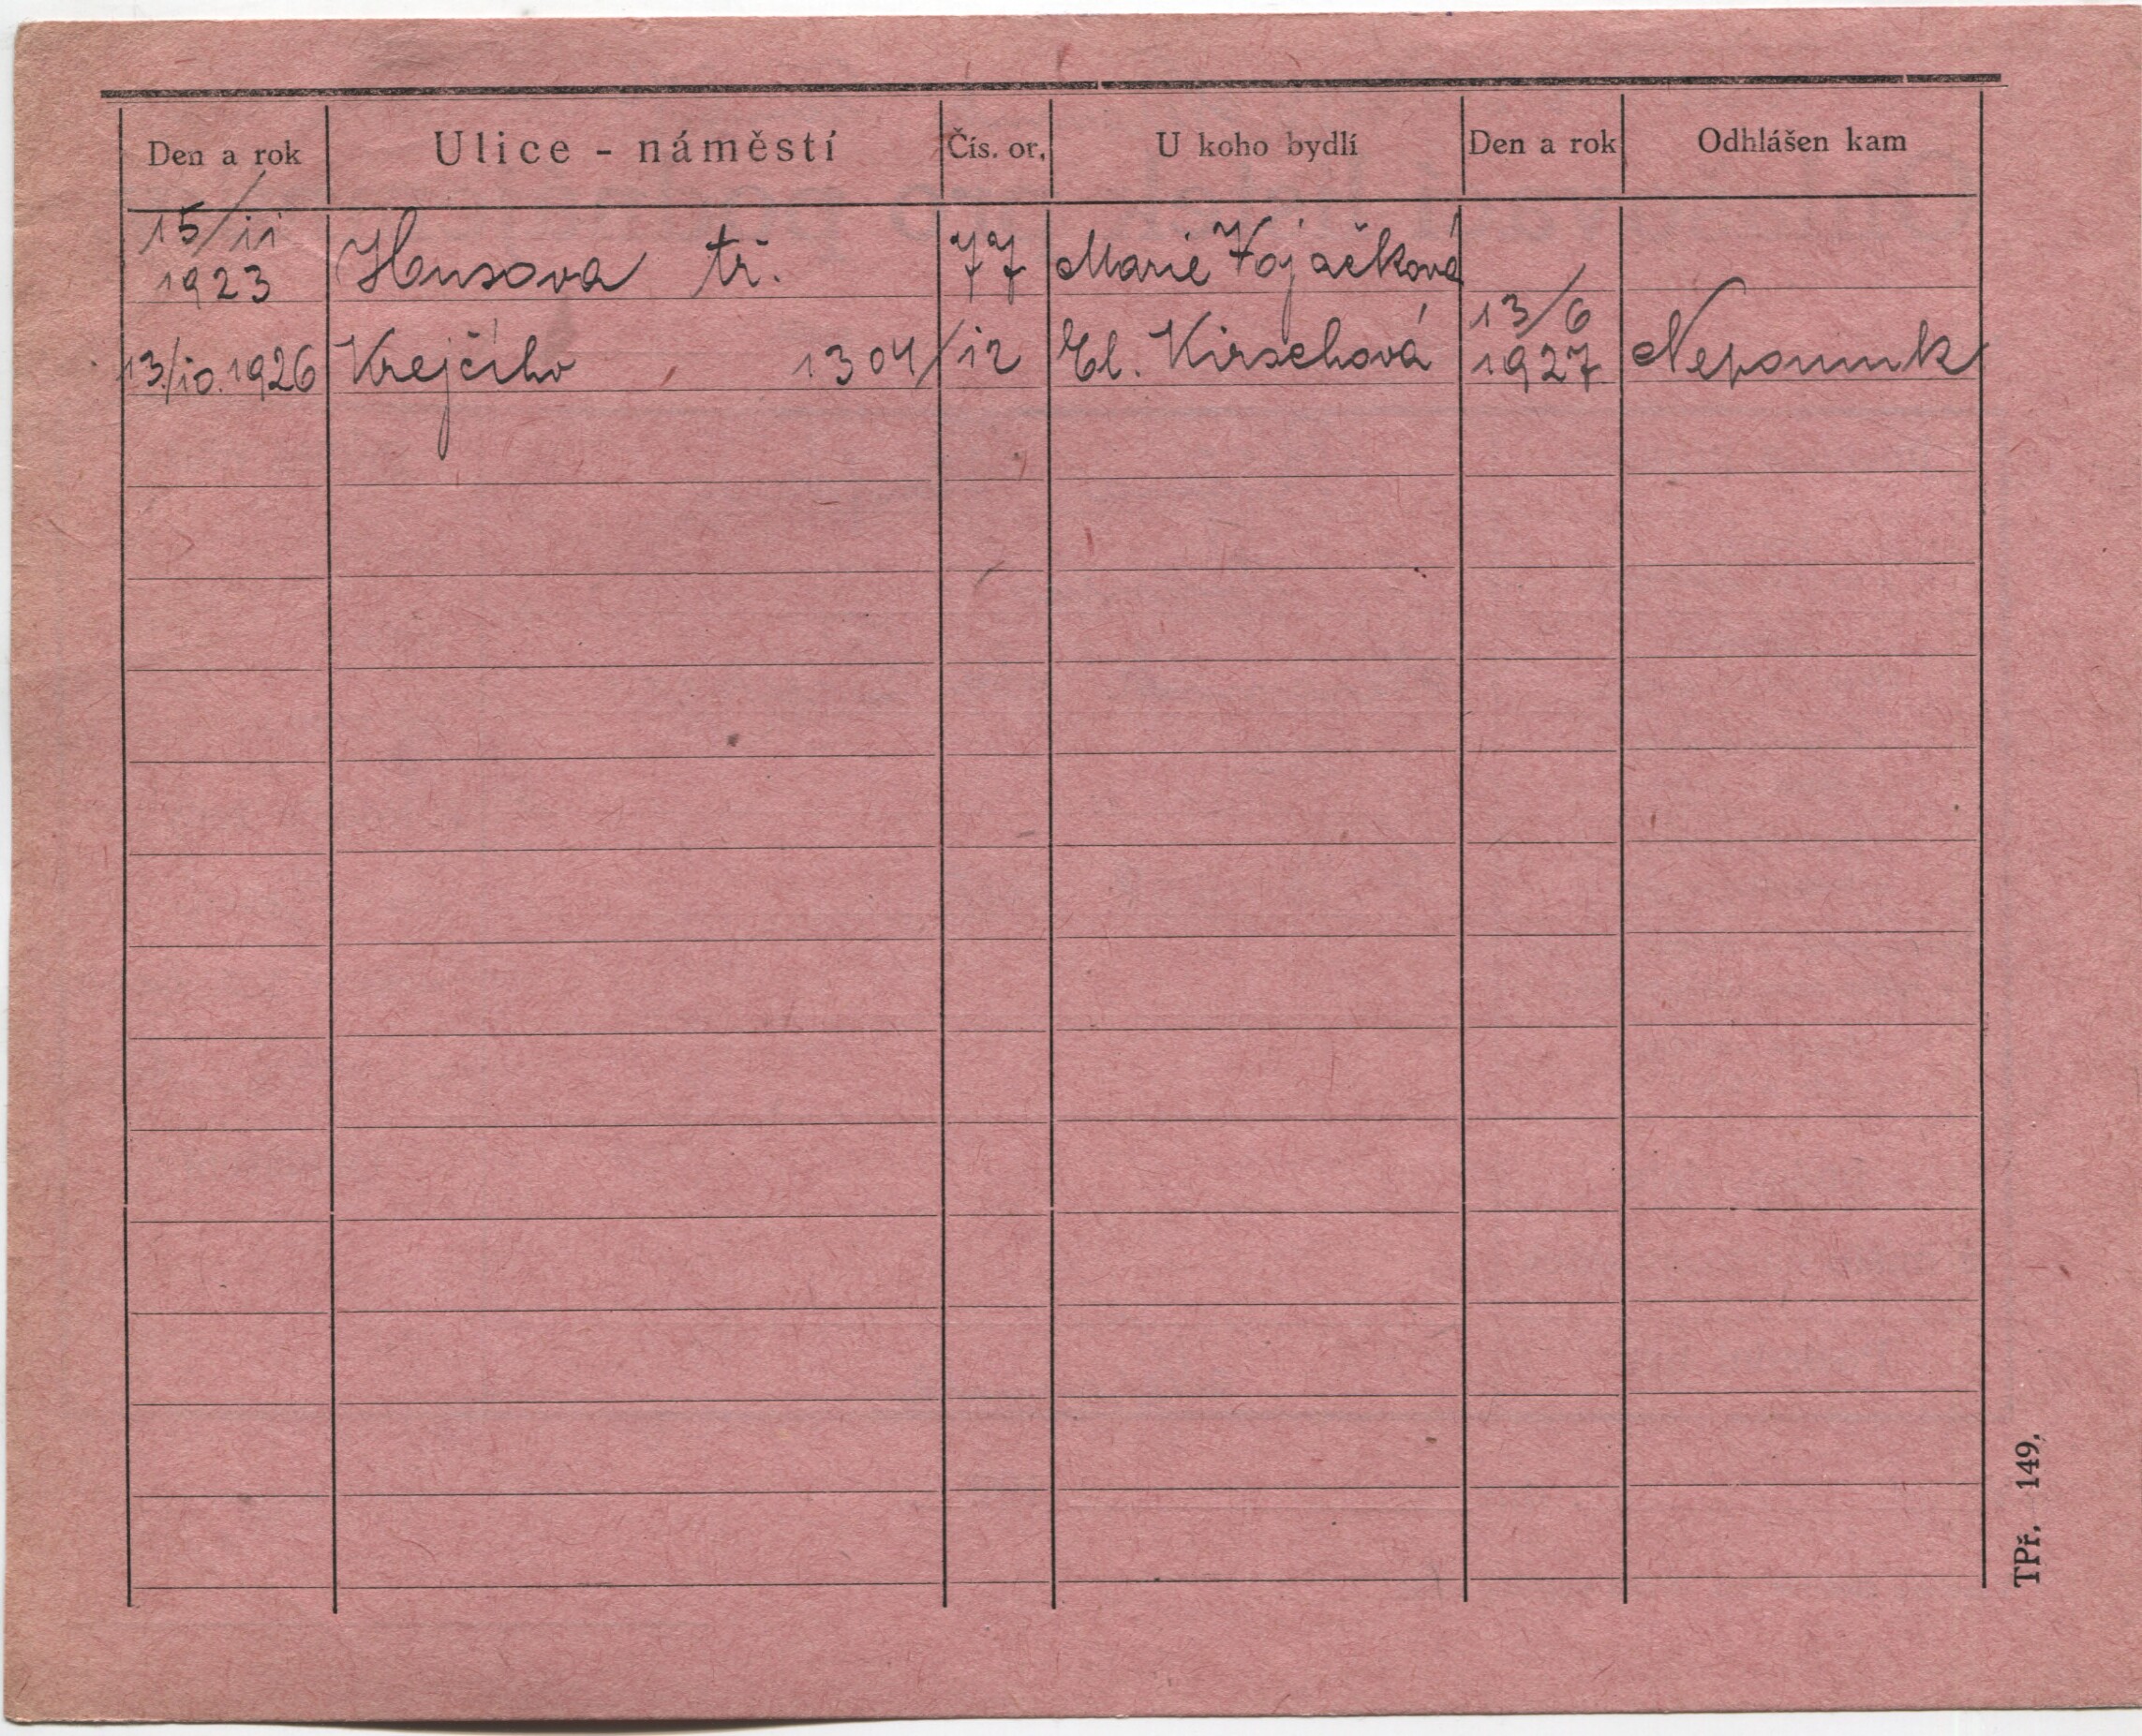 Den a rok Ulice - náměstí Čís. or. U koho bydlí Den a rok Odhlášen kam
15/11
1923 Husova tř. 77 Marie Vojáčková
13/6
13./10. 1926 Krejčího 1304/12 El. Kirschová 1927 Nepomuk
TPř. 149.